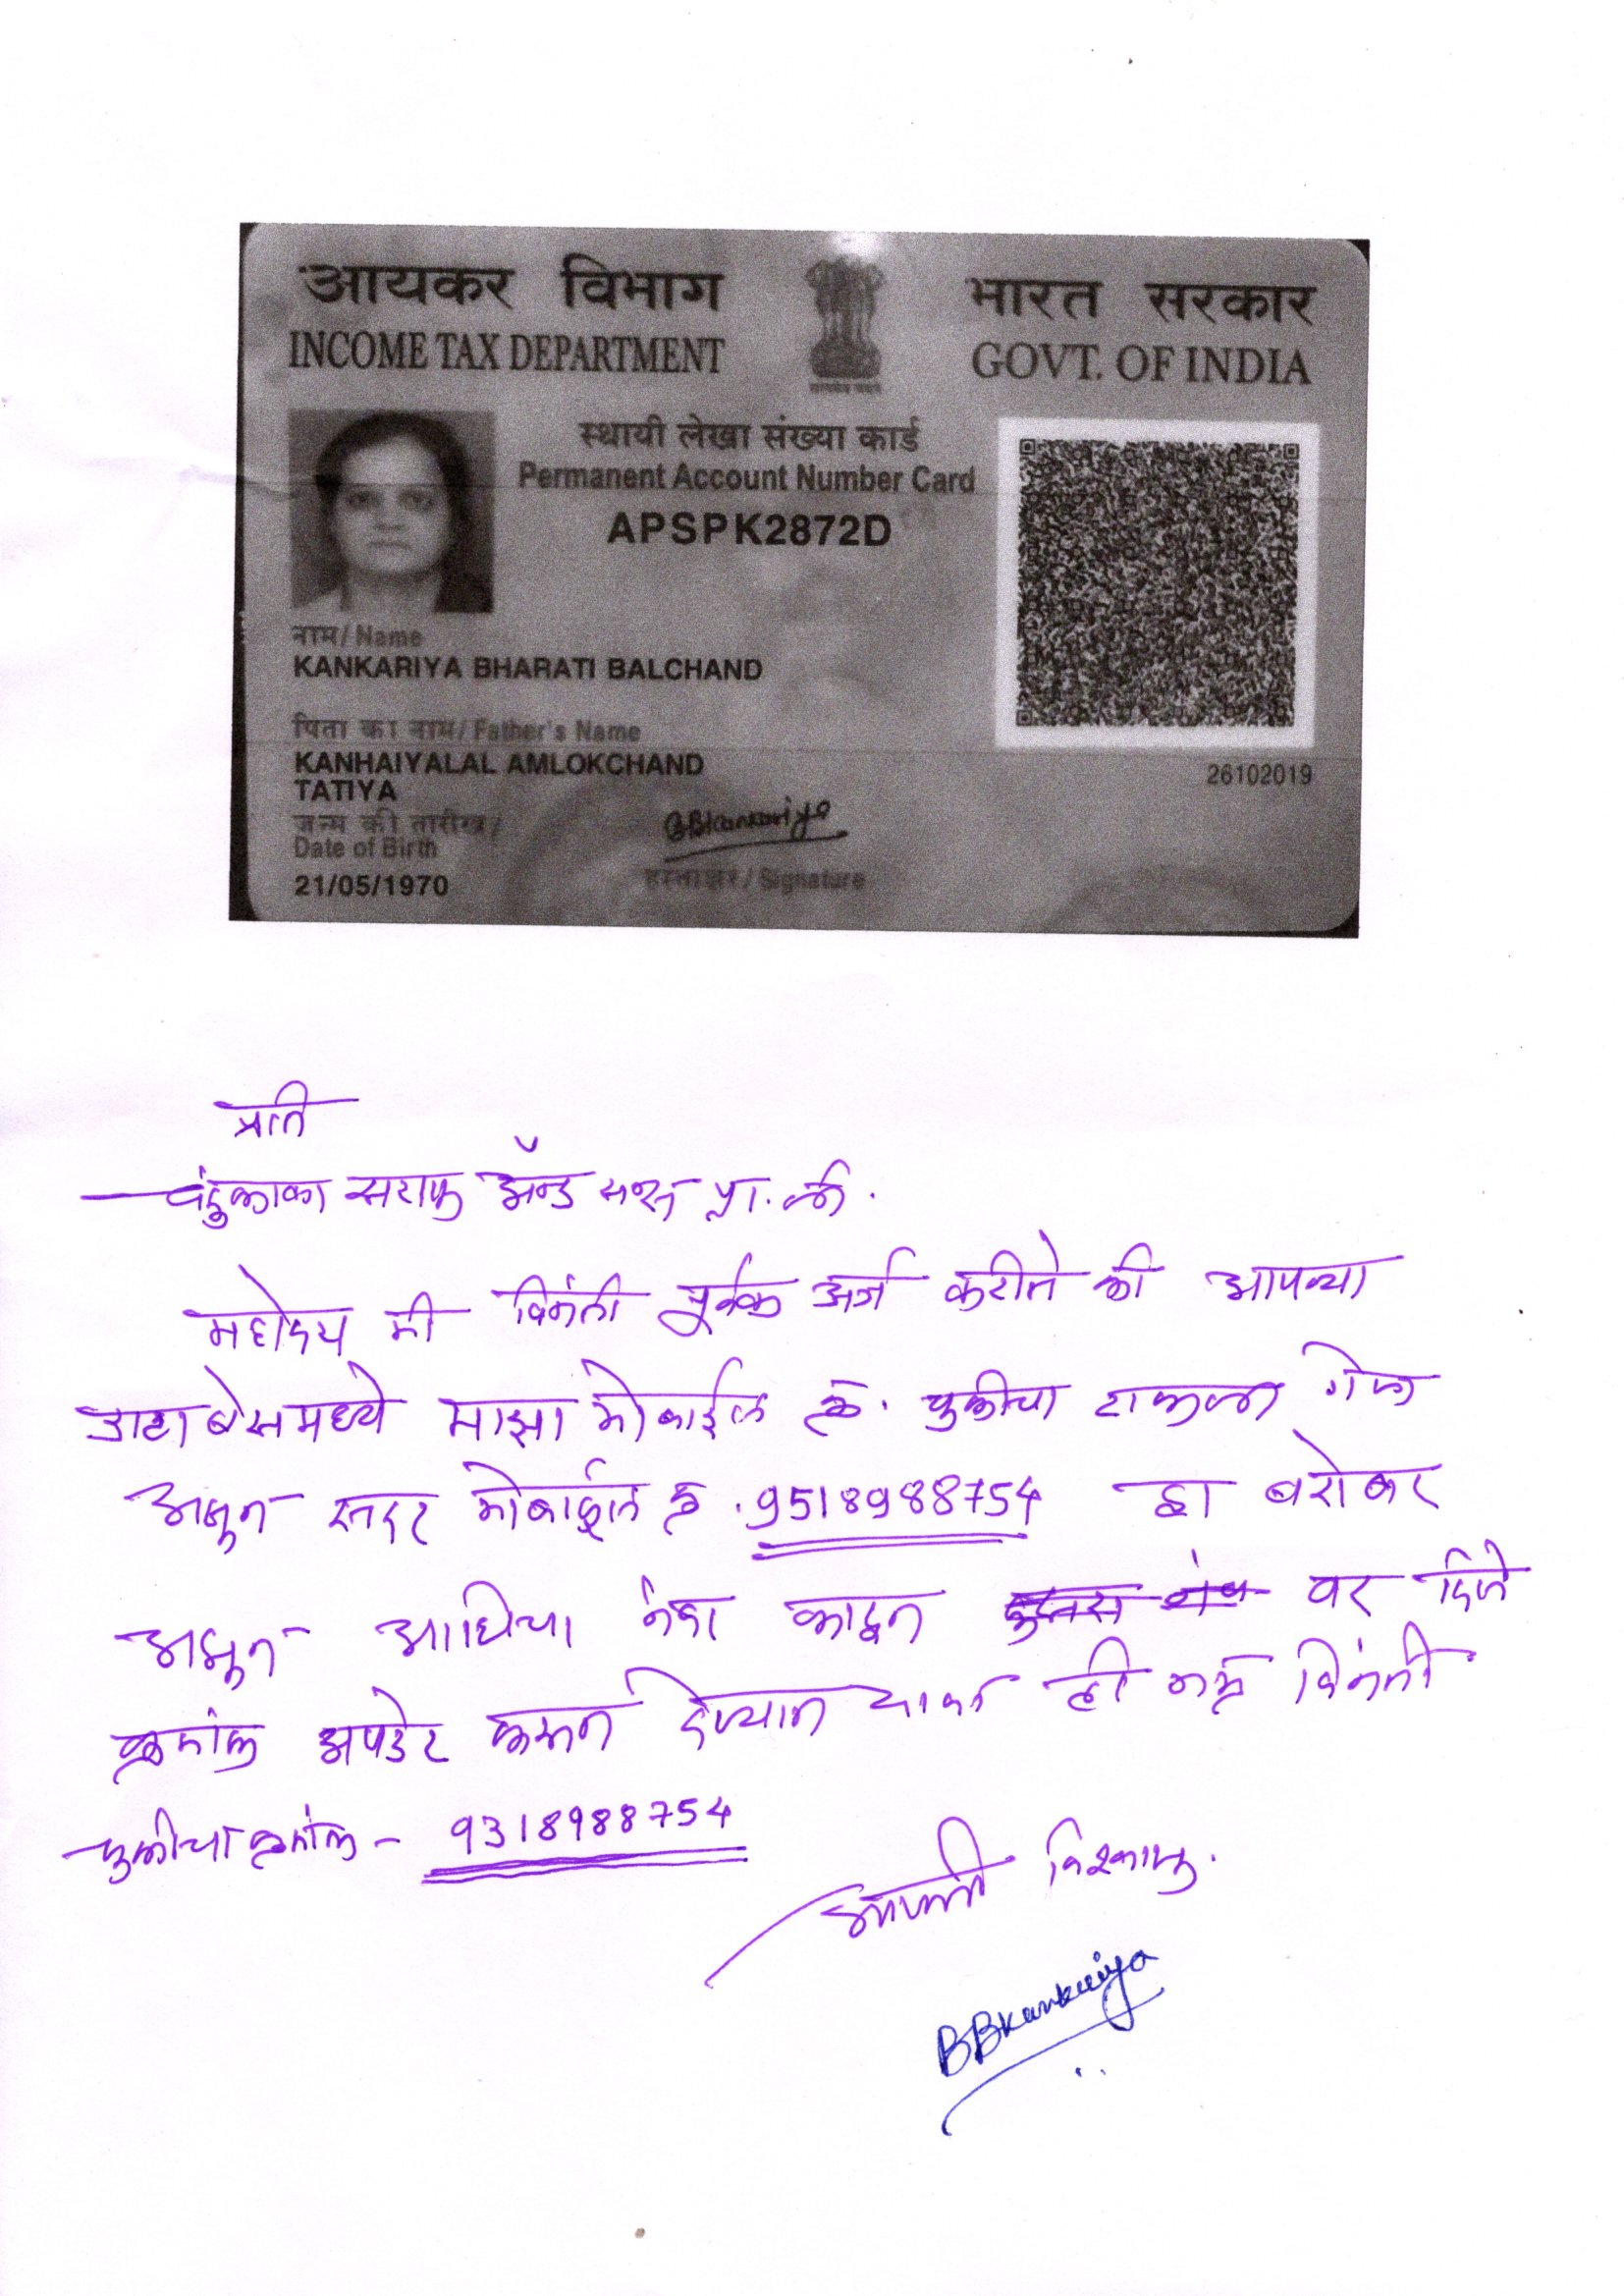 आयकर विभाग
INCOME TAX DEPARTMENT
भारत सरकार
GOVT. OF INDIA
स्थायी लेखा संख्या कार्ड
Permanent Account Number Card
APSPK2872D
नाम / Name
KANKARIYA BHARATI BALCHAND
पिता का नाम / Father's Name
KANHAIYALAL AMLOKCHAND
TATIYA
26102019
जन्म की तारीख /
Date of Birth
21/05/1970
BBKankariya
हस्ताक्षर / Signature
प्रति
चंदुकाका सराफ अँन्ड सन्स प्रा. ली.
महोदय मी विनंती पूर्वक अर्ज करीते की आपल्या
डाटा बेसमध्ये माझा मोबाईल क्र. चुकीचा टाकला गेला
असुन सदर मोबाईल क्र. 9518988754 हा बरोबर
असुन आधिचा काढुन वर दिले
क्रमांक अपडेट करून देण्यात यावा ही नम्र विनंती
चुकीचा क्रमांक - 9318988754
आपली विश्वासु.
BBKankariya